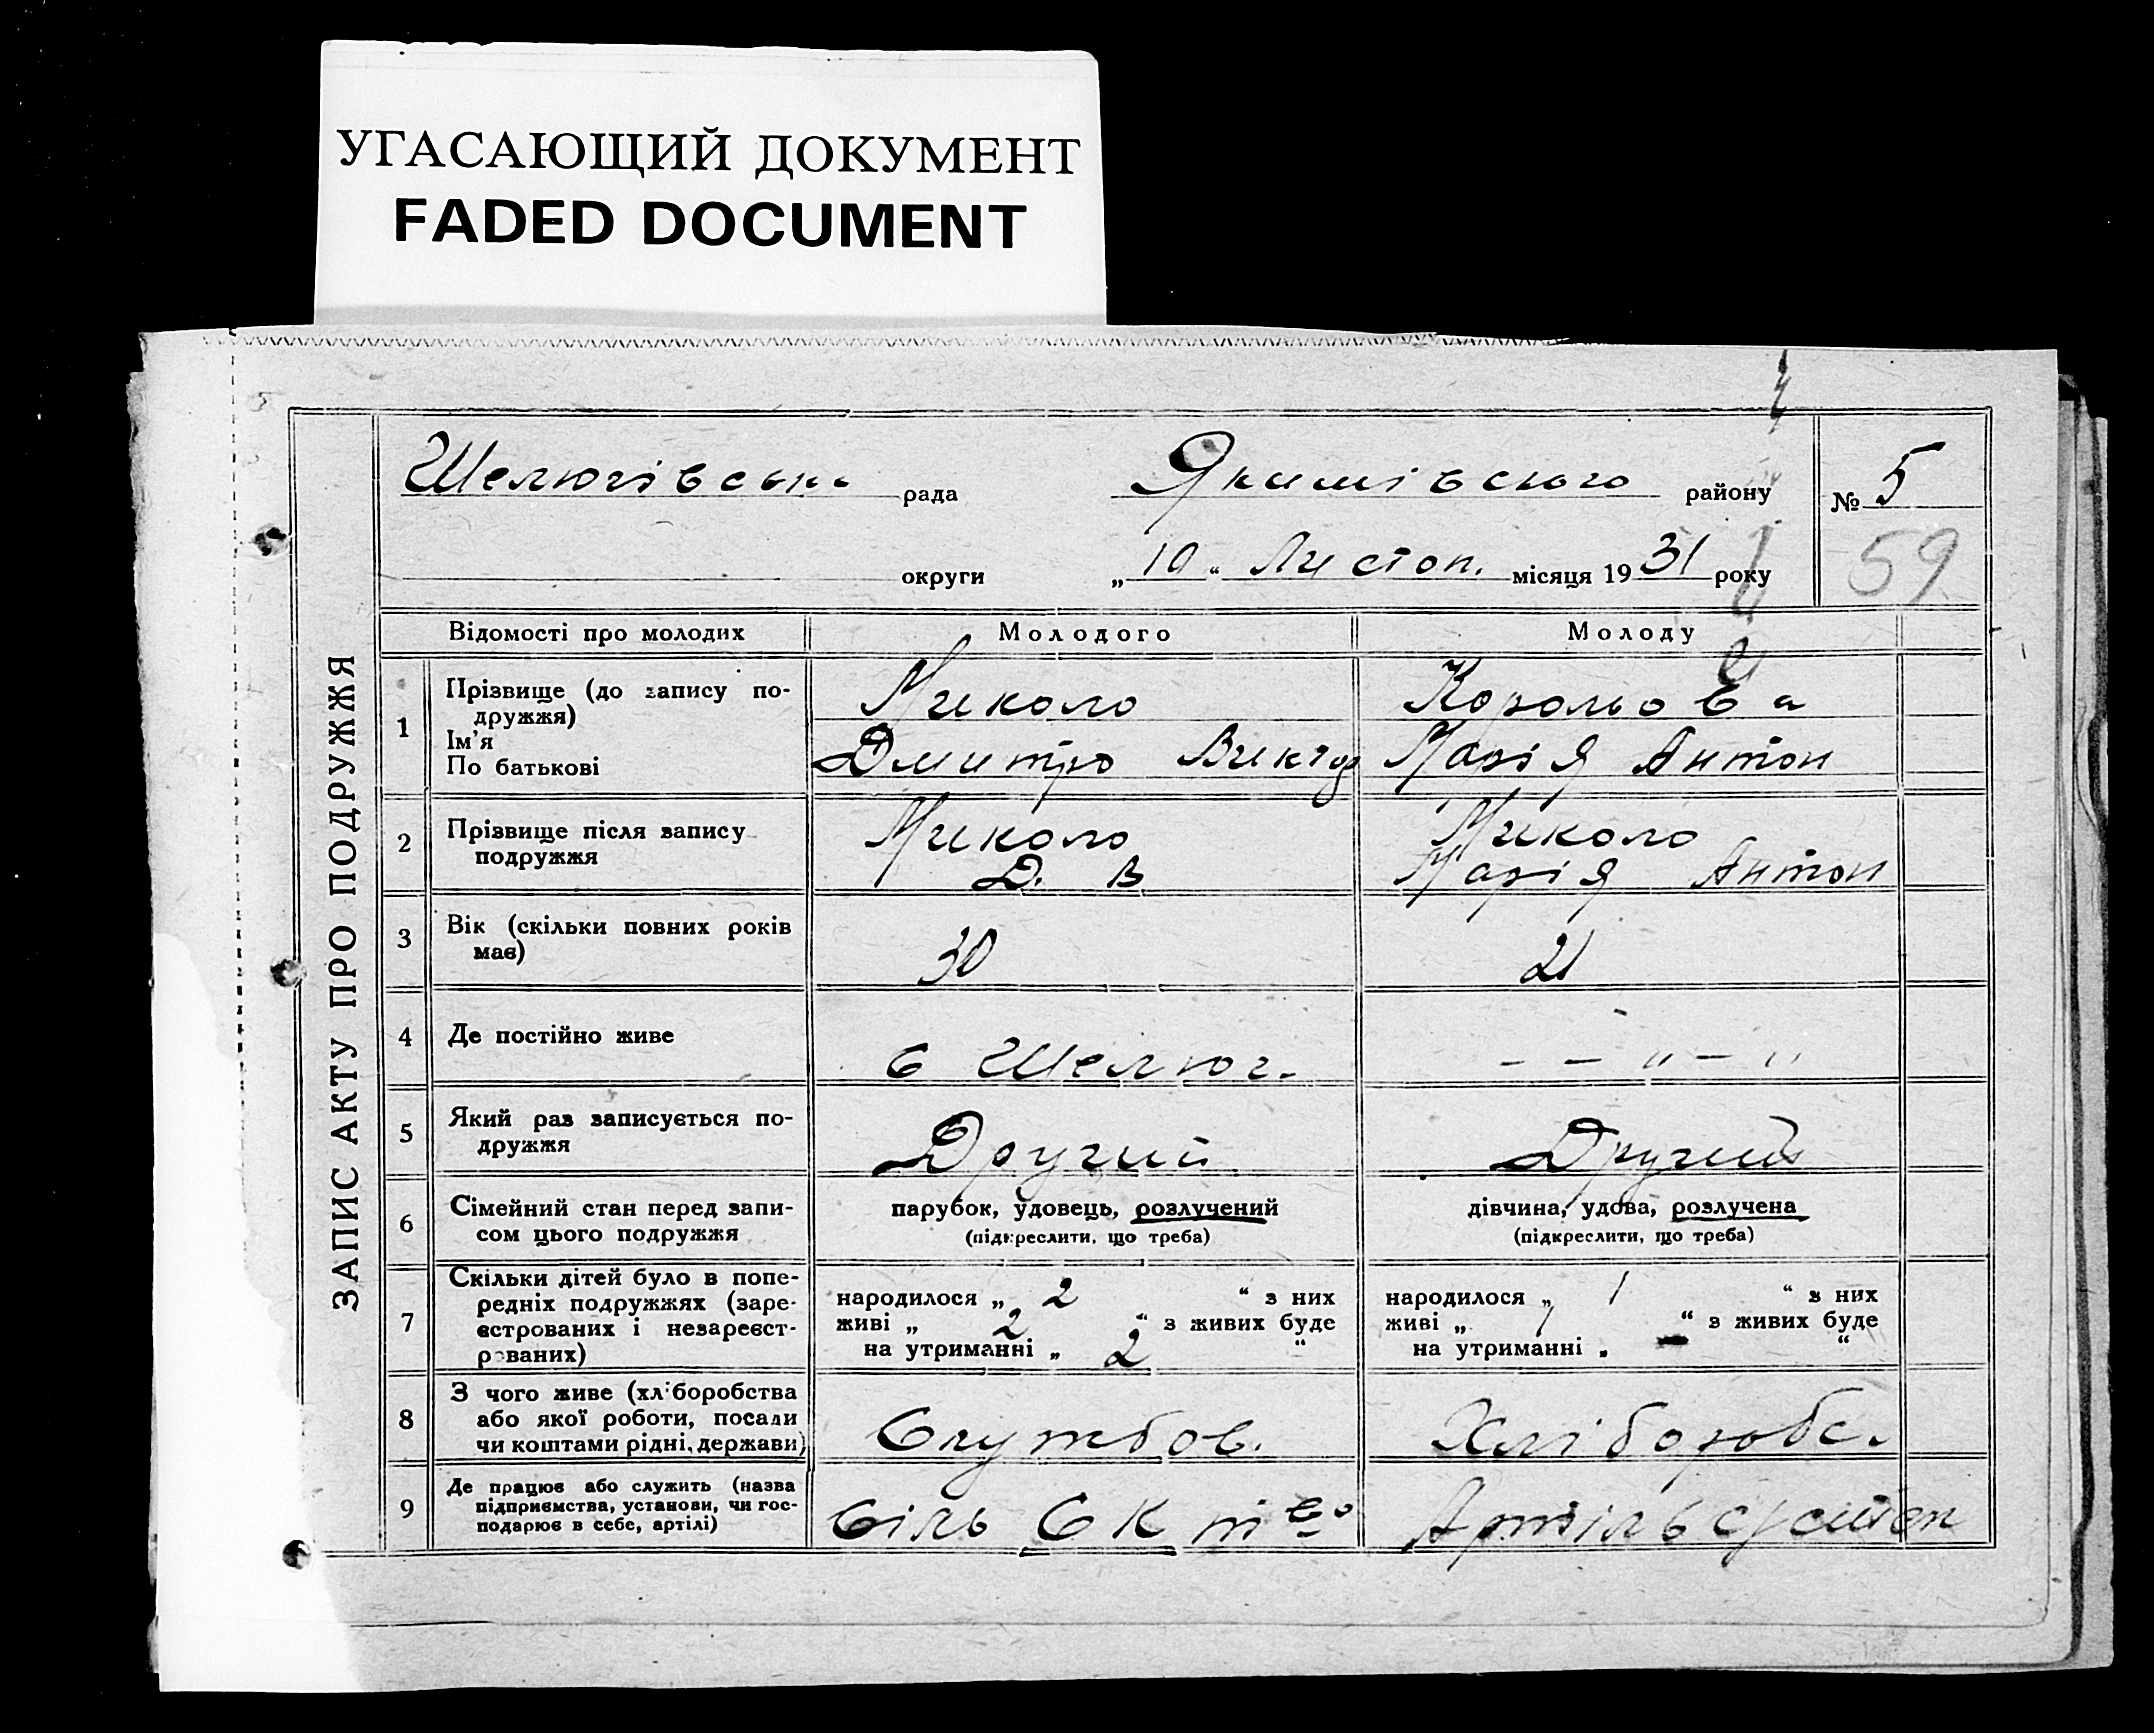 УГАСАЮЩИЙ ДОКУМЕНТ
FADED DOCUMENT
ЗАПИС АКТУ ПРО ПОДРУЖЖЯ
Шелюгівська рада Якимівського району № 5
округи „10“ Листоп. місяця 1931 року 59
Відомості про молодих Молодого Молоду
1 Прізвище (до запису подружжя) Миколо Корольова
Ім'я
По батькові Дмитро Виктор Марія Антон
2 Прізвище після запису подружжя Миколо Миколо
Д. В Марія Антон
3 Вік (скільки повних років має) 30 21
4 Де постійно живе с Шелюг. – – " – "
5 Який раз записується подружжя Другий Другий
6 Сімейний стан перед записом цього подружжя парубок, удовець, розлучений дівчина, удова, розлучена
(підкреслити, що треба) (підкреслити, що треба)
7 Скільки дітей було в попередніх подружжях (зареєстрованих і незареєстрованих)
народилося „ 2 “ з них народилося „ 1 “ з них
живі „ 2 “ з живих буде живі „ 1 “ з живих буде
на утриманні „ 2 “ на утриманні „ – “
8 З чого живе (хліборобства або якої роботи, посади чи коштами рідні, держави) Службов. Хлібороб.
9 Де працює або служить (назва підприємства, установи, чи господарює в себе, артілі) Сіль СК т во Артіль